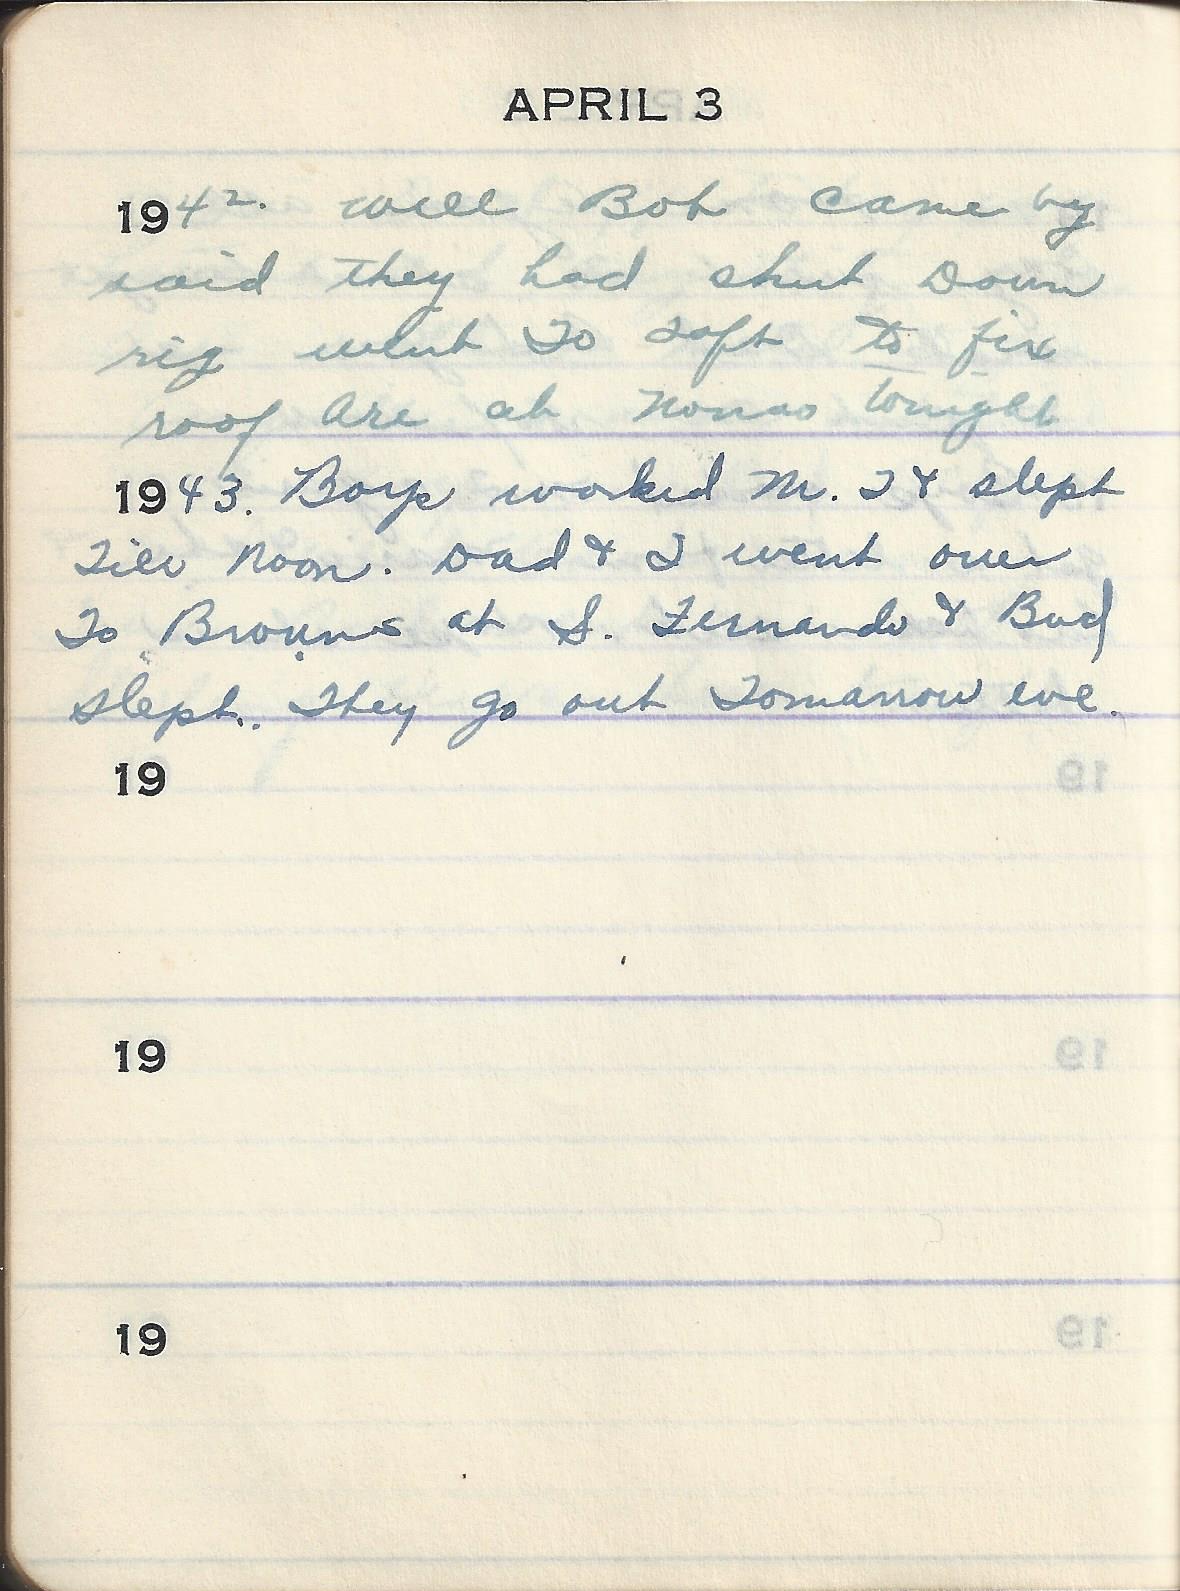 APRIL 3
1942. well Bob came by
said they had shut Down
rig went To Taft to fix
roof are at Nonas tonight
1943. Boys worked M. T & slept
Till Noon. Dad & I went over
To Browns at S. Fernando & Bud
slept. They go out Tomarrow eve.
19
19
19